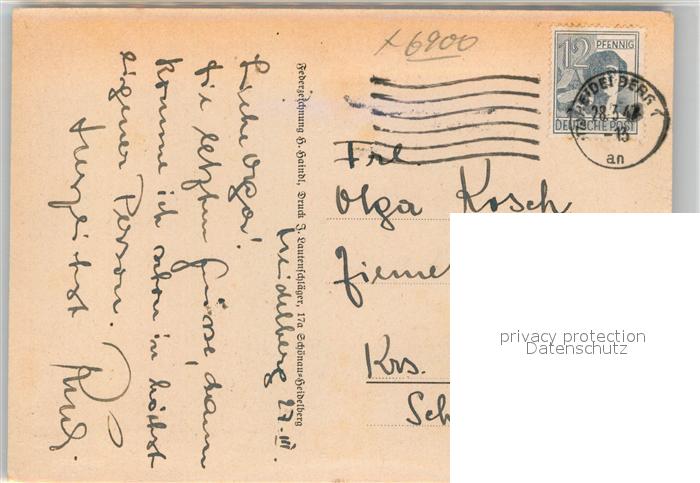 x 6900
12 PFENNIG
DEUTSCHE POST
HEIDELBERG 1
28.3.47
-13
an
Frl
Olga Kosch
Krs.
Sch
privacy protection
Datenschutz
Federzeichnung H. Haindl, Druck J. Lautenschläger, 17a Schönau-Heidelberg
Heidelberg 27.III.
Liebe Olga!
Die letzten Grüsse, dann
komme ich schon in höchst
eigener Person.
Herzlichst